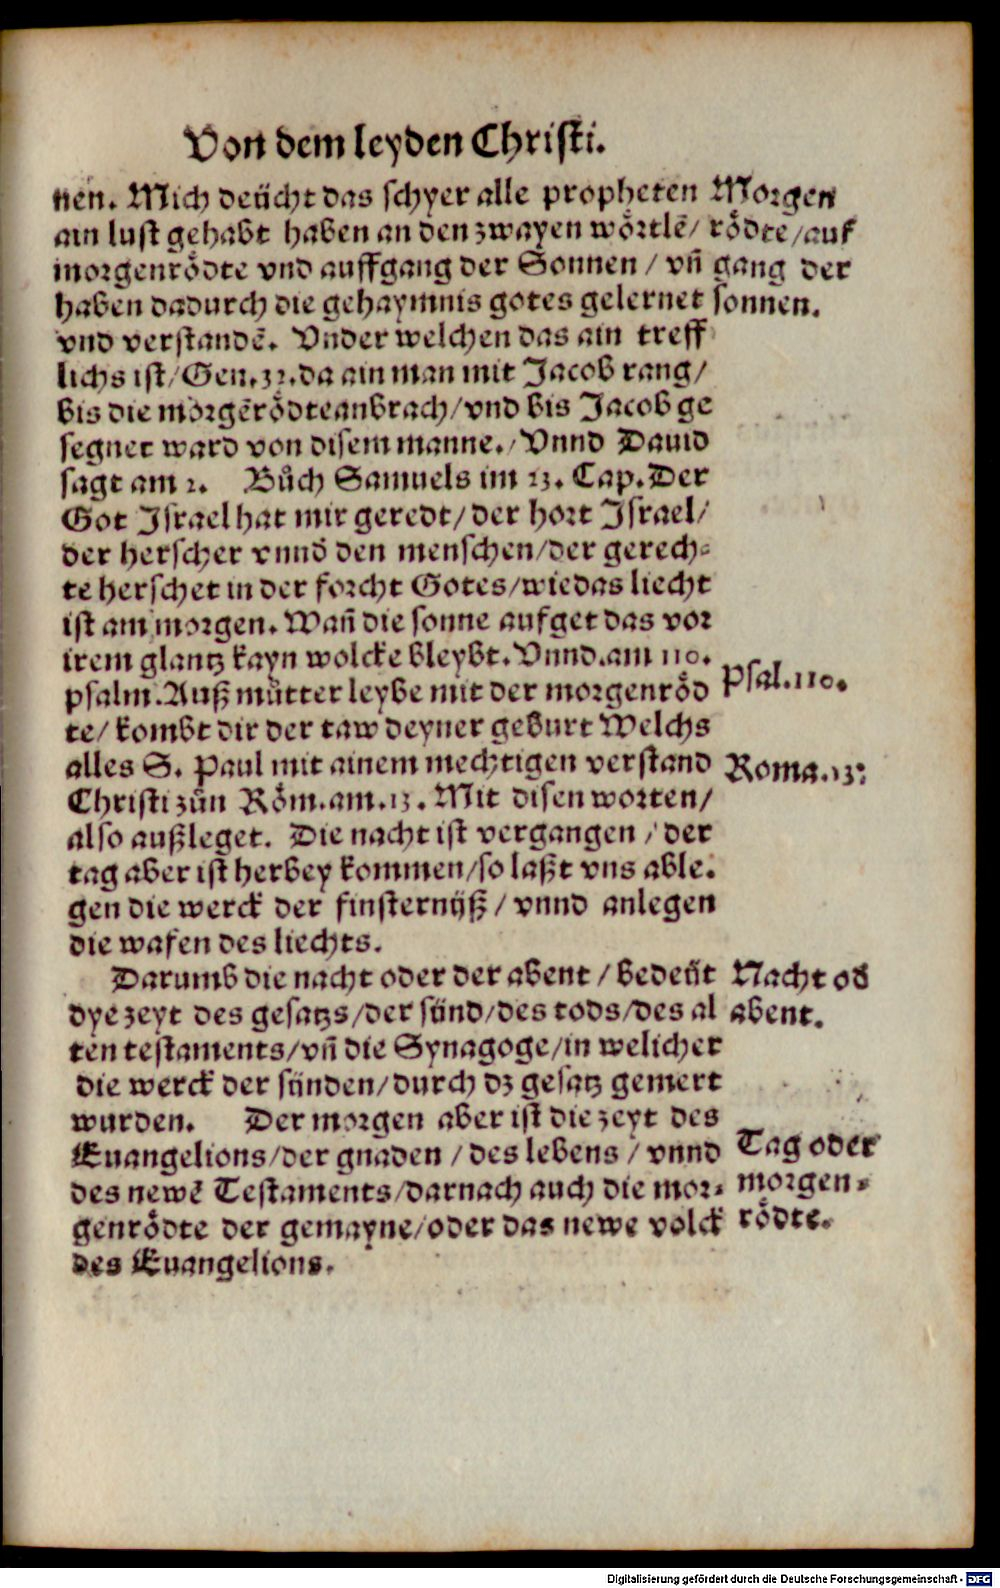 Von dem leyden Christi.
nen. Mich deücht das schyer alle propheten
ain lust gehabt haben an den zwayen wörtlē/
morgenrödte vnd auffgang der Sonnen / vñ
haben dadurch die gehaymnis gotes gelernet
vnd verstandē. Vnder welchen das ain treff
lichs ist/ Gen. 32. da ain man mit Jacob rang/
bis die morgērödte anbrach/ vnd bis Jacob ge
segnet ward von disem manne. / Vnnd Dauid
sagt am 2. Bůch Samuels im 23. Cap. Der
Got Israel hat mir geredt/ der hort Israel/
der herscher vnnd den menschen/ der gerech-
te herschet in der forcht Gotes/ wie das liecht
ist am morgen. Wañ die sonne aufget das vor
irem glantz kayn wolcke bleybt. Vnnd. am 110.
psalm. Auß můtter leybe mit der morgenröd
te/ kombt dir der taw deyner geburt Welchs
alles S. Paul mit ainem mechtigen verstand
Christi zůn Röm. am. 13. Mit disen worten/
also außleget. Die nacht ist vergangen / der
tag aber ist herbey kommen/ so laßt vns able.
gen die werck der finsternüß / vnnd anlegen
die wafen des liechts.
Darumb die nacht oder der abent / bedeüt
dye zeyt des gesatzs/ der sünd/ des tods/ des al
ten testaments/ vñ die Synagoge/ in welicher
die werck der sünden/ durch dz gesatz gemert
wurden. Der morgen aber ist die zeyt des
Euangelions/ der gnaden / des lebens / vnnd
des newē Testaments/ darnach auch die mor-
genrödte der gemayne/ oder das newe volck
des Euangelions.
Morgen
rödte/ auf
gang der
sonnen.
Psal. 110.
Roma. 13.
Nacht od
abent.
Tag oder
morgen-
rödte.
Digitalisierung gefördert durch die Deutsche Forschungsgemeinschaft - DFG